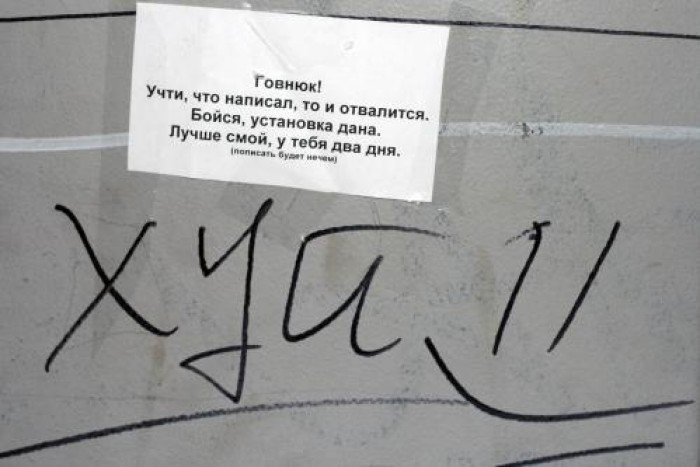 Говнюк!
Учти, что написал, то и отвалится.
Бойся, установка дана.
Лучше смой, у тебя два дня.
(пописать будет нечем)
хуй 11